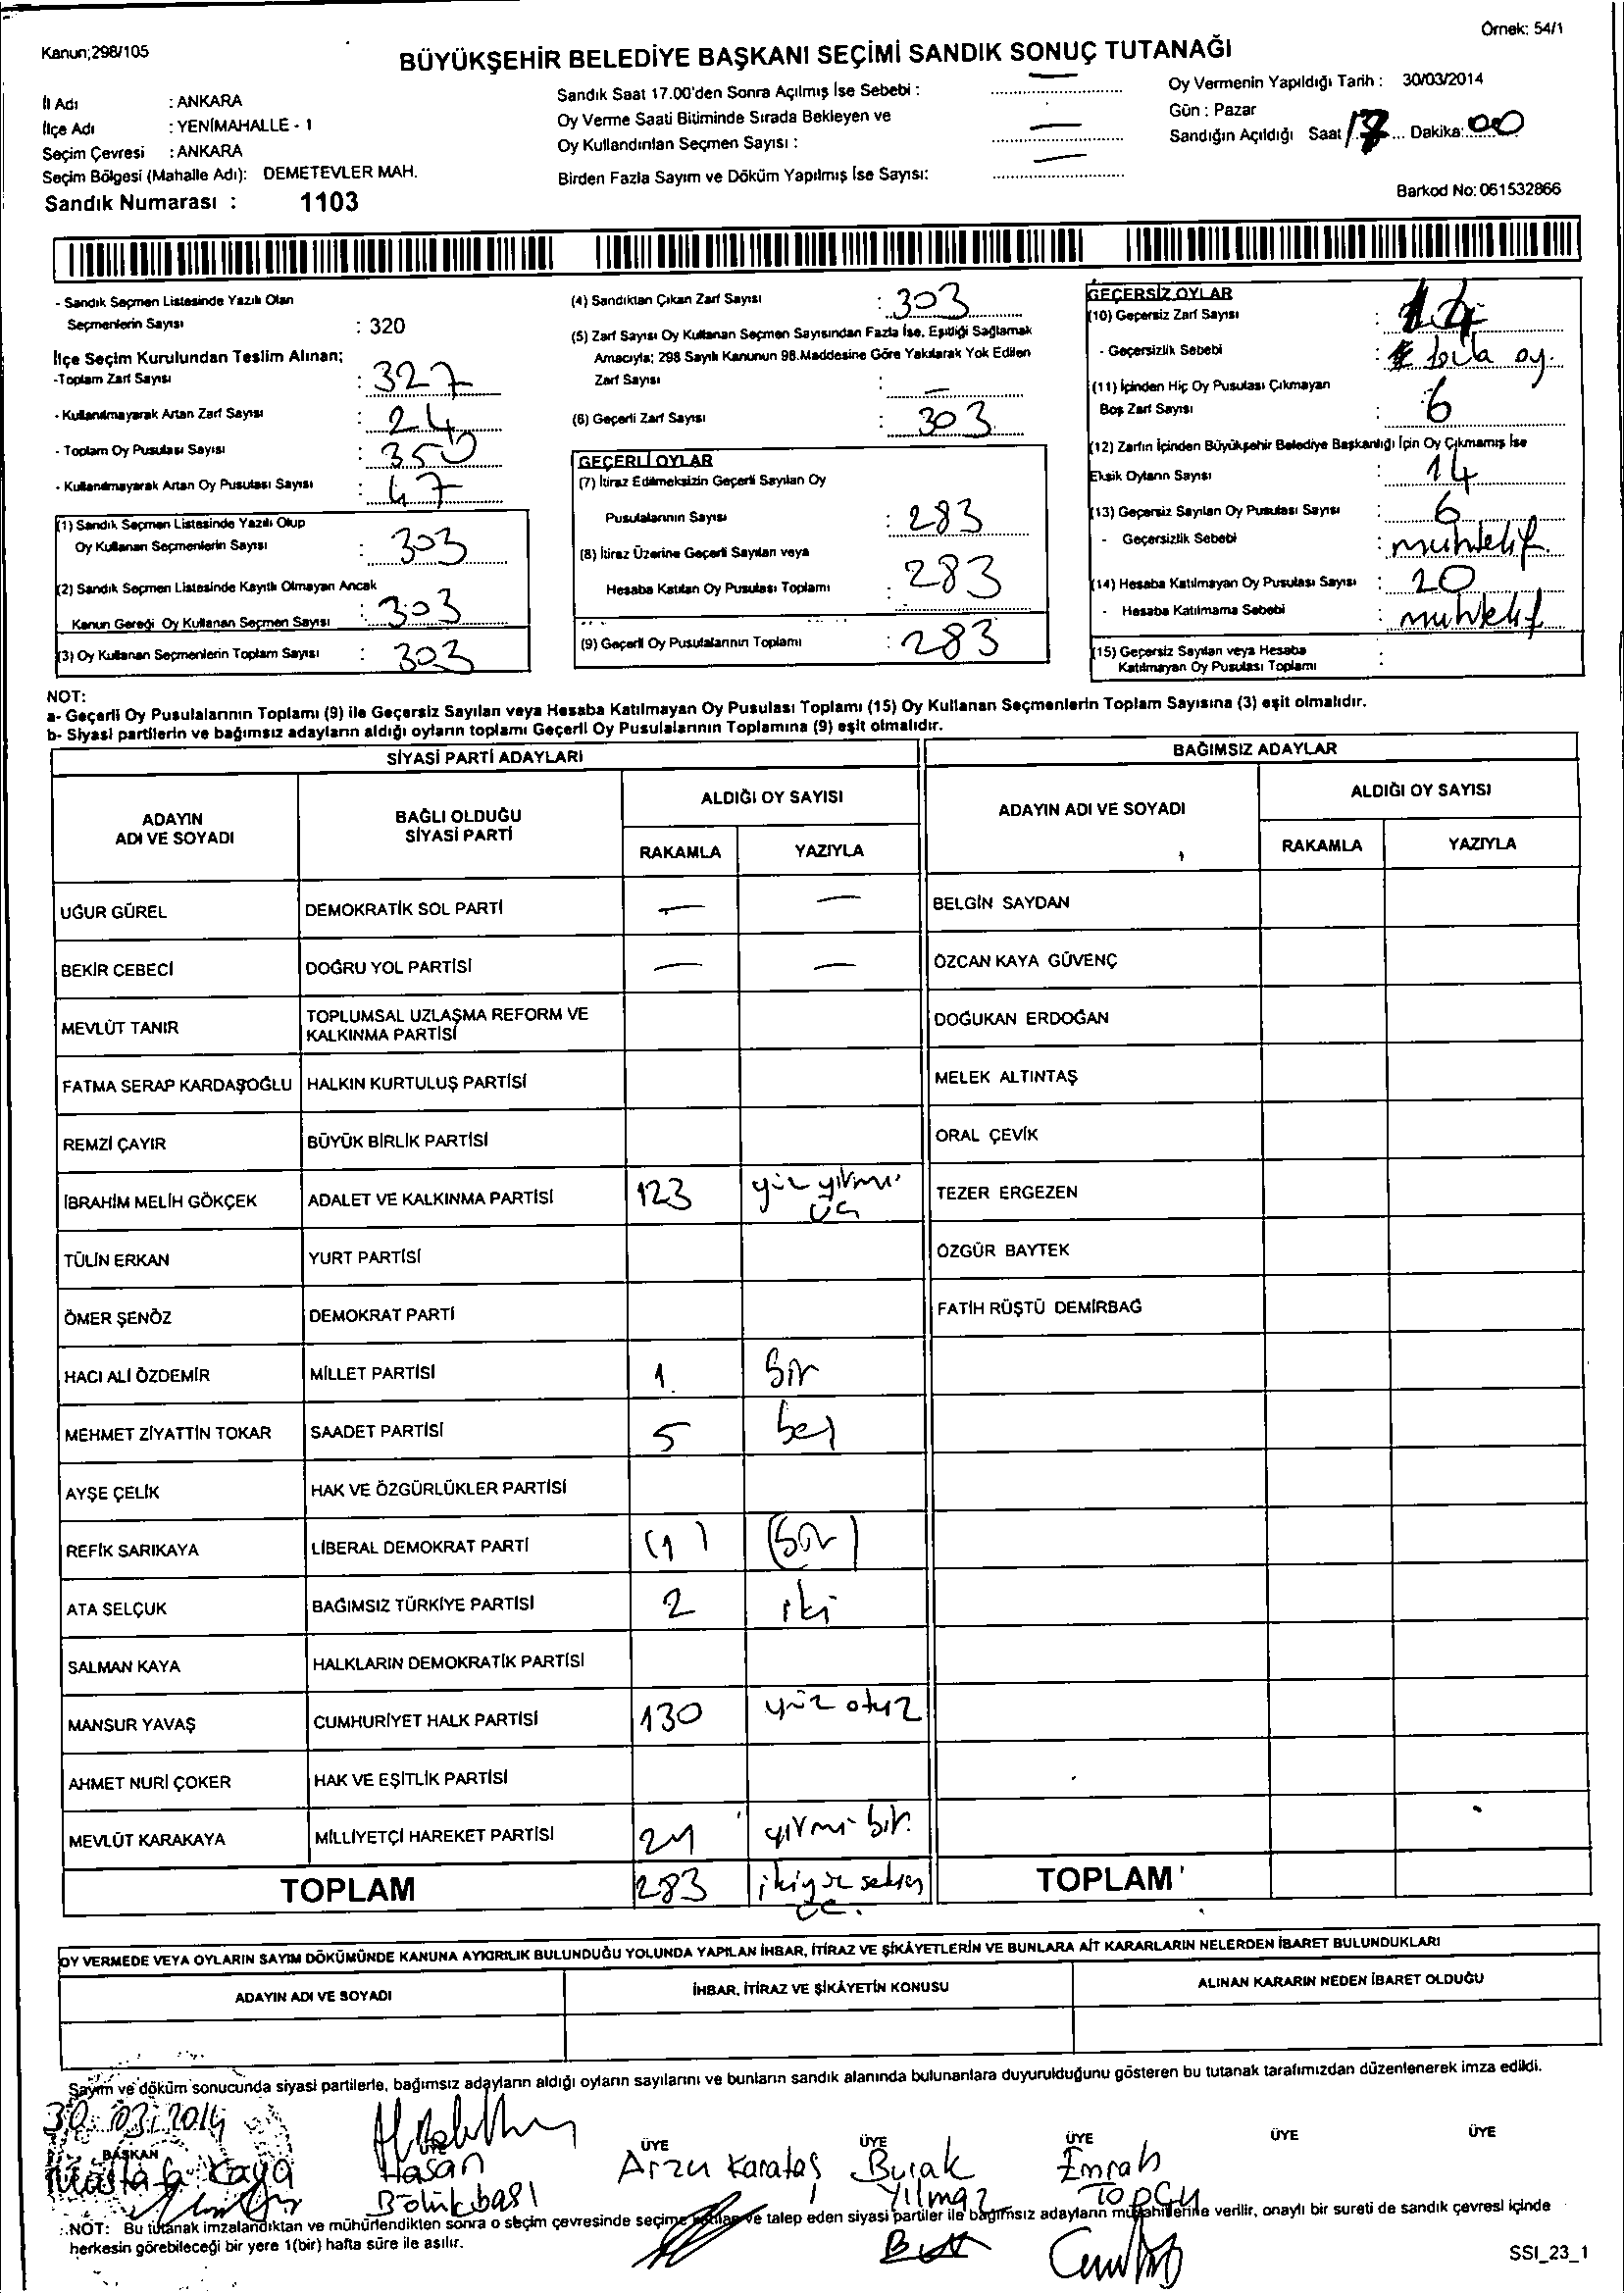 Örnek: 54/1
Kanun;298/105
BÜYÜKŞEHİR BELEDİYE BAŞKANI SEÇİMİ SANDIK SONUÇ TUTANAĞI
İl Adı : ANKARA
İlçe Adı : YENİMAHALLE - 1
Seçim Çevresi : ANKARA
Seçim Bölgesi (Mahalle Adı): DEMETEVLER MAH.
Sandık Numarası : 1103
Sandık Saat 17.00'den Sonra Açılmış İse Sebebi : —
Oy Verme Saati Bitiminde Sırada Bekleyen ve
Oy Kullandırılan Seçmen Sayısı : —
Birden Fazla Sayım ve Döküm Yapılmış İse Sayısı: —
Oy Vermenin Yapıldığı Tarih : 30/03/2014
Gün : Pazar
Sandığın Açıldığı Saat 17 Dakika: 00
Barkod No: 061532866
- Sandık Seçmen Listesinde Yazılı Olan
Seçmenlerin Sayısı : 320
İlçe Seçim Kurulundan Teslim Alınan;
-Toplam Zarf Sayısı : 327
- Kullanılmayarak Artan Zarf Sayısı : 24
- Toplam Oy Pusulası Sayısı : 350
- Kullanılmayarak Artan Oy Pusulası Sayısı : 47
(1) Sandık Seçmen Listesinde Yazılı Olup
Oy Kullanan Seçmenlerin Sayısı : 303
(2) Sandık Seçmen Listesinde Kayıtlı Olmayan Ancak
Kanun Gereği Oy Kullanan Seçmen Sayısı : 303
(3) Oy Kullanan Seçmenlerin Toplam Sayısı : 303
(4) Sandıktan Çıkan Zarf Sayısı : 303
(5) Zarf Sayısı Oy Kullanan Seçmen Sayısından Fazla İse, Eşitliği Sağlamak
Amacıyla; 298 Sayılı Kanunun 98.Maddesine Göre Yakılarak Yok Edilen
Zarf Sayısı : —
(6) Geçerli Zarf Sayısı : 303
GEÇERLİ OYLAR
(7) İtiraz Edilmeksizin Geçerli Sayılan Oy
Pusulalarının Sayısı : 283
(8) İtiraz Üzerine Geçerli Sayılan veya
Hesaba Katılan Oy Pusulası Toplamı : 283
(9) Geçerli Oy Pusulalarının Toplamı : 283
GEÇERSİZ OYLAR
(10) Geçersiz Zarf Sayısı : 14
- Geçersizlik Sebebi : oy.
(11) İçinden Hiç Oy Pusulası Çıkmayan
Boş Zarf Sayısı : 6
(12) Zarfın İçinden Büyükşehir Belediye Başkanlığı İçin Oy Çıkmamış İse
Eksik Oyların Sayısı : 14
(13) Geçersiz Sayılan Oy Pusulası Sayısı : 6
- Geçersizlik Sebebi : muhtelif.
(14) Hesaba Katılmayan Oy Pusulası Sayısı : 20
- Hesaba Katılmama Sebebi : muhtelif
(15) Geçersiz Sayılan veya Hesaba
Katılmayan Oy Pusulası Toplamı :
NOT:
a- Geçerli Oy Pusulalarının Toplamı (9) ile Geçersiz Sayılan veya Hesaba Katılmayan Oy Pusulası Toplamı (15) Oy Kullanan Seçmenlerin Toplam Sayısına (3) eşit olmalıdır.
b- Siyasi partilerin ve bağımsız adayların aldığı oyların toplamı Geçerli Oy Pusulalarının Toplamına (9) eşit olmalıdır.
SİYASİ PARTİ ADAYLARI
ADAYIN ADI VE SOYADI
BAĞLI OLDUĞU SİYASİ PARTİ
ALDIĞI OY SAYISI
RAKAMLA YAZIYLA
UĞUR GÜREL DEMOKRATİK SOL PARTİ — —
BEKİR CEBECİ DOĞRU YOL PARTİSİ — —
MEVLÜT TANIR TOPLUMSAL UZLAŞMA REFORM VE
KALKINMA PARTİSİ
FATMA SERAP KARDAŞOĞLU HALKIN KURTULUŞ PARTİSİ
REMZİ ÇAYIR BÜYÜK BİRLİK PARTİSİ
İBRAHİM MELİH GÖKÇEK ADALET VE KALKINMA PARTİSİ 123 yüz yirmi üç
TÜLİN ERKAN YURT PARTİSİ
ÖMER ŞENÖZ DEMOKRAT PARTİ
HACI ALİ ÖZDEMİR MİLLET PARTİSİ 1. bir
MEHMET ZİYATTİN TOKAR SAADET PARTİSİ 5 beş
AYŞE ÇELİK HAK VE ÖZGÜRLÜKLER PARTİSİ
REFİK SARIKAYA LİBERAL DEMOKRAT PARTİ (1) (bir)
ATA SELÇUK BAĞIMSIZ TÜRKİYE PARTİSİ 2 iki
SALMAN KAYA HALKLARIN DEMOKRATİK PARTİSİ
MANSUR YAVAŞ CUMHURİYET HALK PARTİSİ 130 yüz otuz
AHMET NURİ ÇOKER HAK VE EŞİTLİK PARTİSİ
MEVLÜT KARAKAYA MİLLİYETÇİ HAREKET PARTİSİ 21 yirmi bir.
TOPLAM 283 ikiyüz seksen üç.
BAĞIMSIZ ADAYLAR
ADAYIN ADI VE SOYADI
ALDIĞI OY SAYISI
RAKAMLA YAZIYLA
BELGİN SAYDAN
ÖZCAN KAYA GÜVENÇ
DOĞUKAN ERDOĞAN
MELEK ALTINTAŞ
ORAL ÇEVİK
TEZER ERGEZEN
ÖZGÜR BAYTEK
FATİH RÜŞTÜ DEMİRBAĞ
TOPLAM
OY VERMEDE VEYA OYLARIN SAYIM DÖKÜMÜNDE KANUNA AYKIRILIK BULUNDUĞU YOLUNDA YAPILAN İHBAR, İTİRAZ VE ŞİKÂYETLERİN VE BUNLARA AİT KARARLARIN NELERDEN İBARET BULUNDUKLARI
ADAYIN ADI VE SOYADI İHBAR, İTİRAZ VE ŞİKÂYETİN KONUSU ALINAN KARARIN NEDEN İBARET OLDUĞU
Sayım ve döküm sonucunda siyasi partilerle, bağımsız adayların aldığı oyların sayılarını ve bunların sandık alanında bulunanlara duyurulduğunu gösteren bu tutanak tarafımızdan düzenlenerek imza edildi.
30.03.2014
BAŞKAN ÜYE ÜYE ÜYE ÜYE ÜYE ÜYE
Mustafa Kaya Hasan Bölükbaşı Arzu Karataş Burak Yılmaz Emrah Topçu
NOT: Bu tutanak imzalandıktan ve mühürlendikten sonra o seçim çevresinde seçime katılan ve talep eden siyasi partiler ile bağımsız adayların müşahitlerine verilir, onaylı bir sureti de sandık çevresi içinde
herkesin görebileceği bir yere 1(bir) hafta süre ile asılır.
SSI_23_1